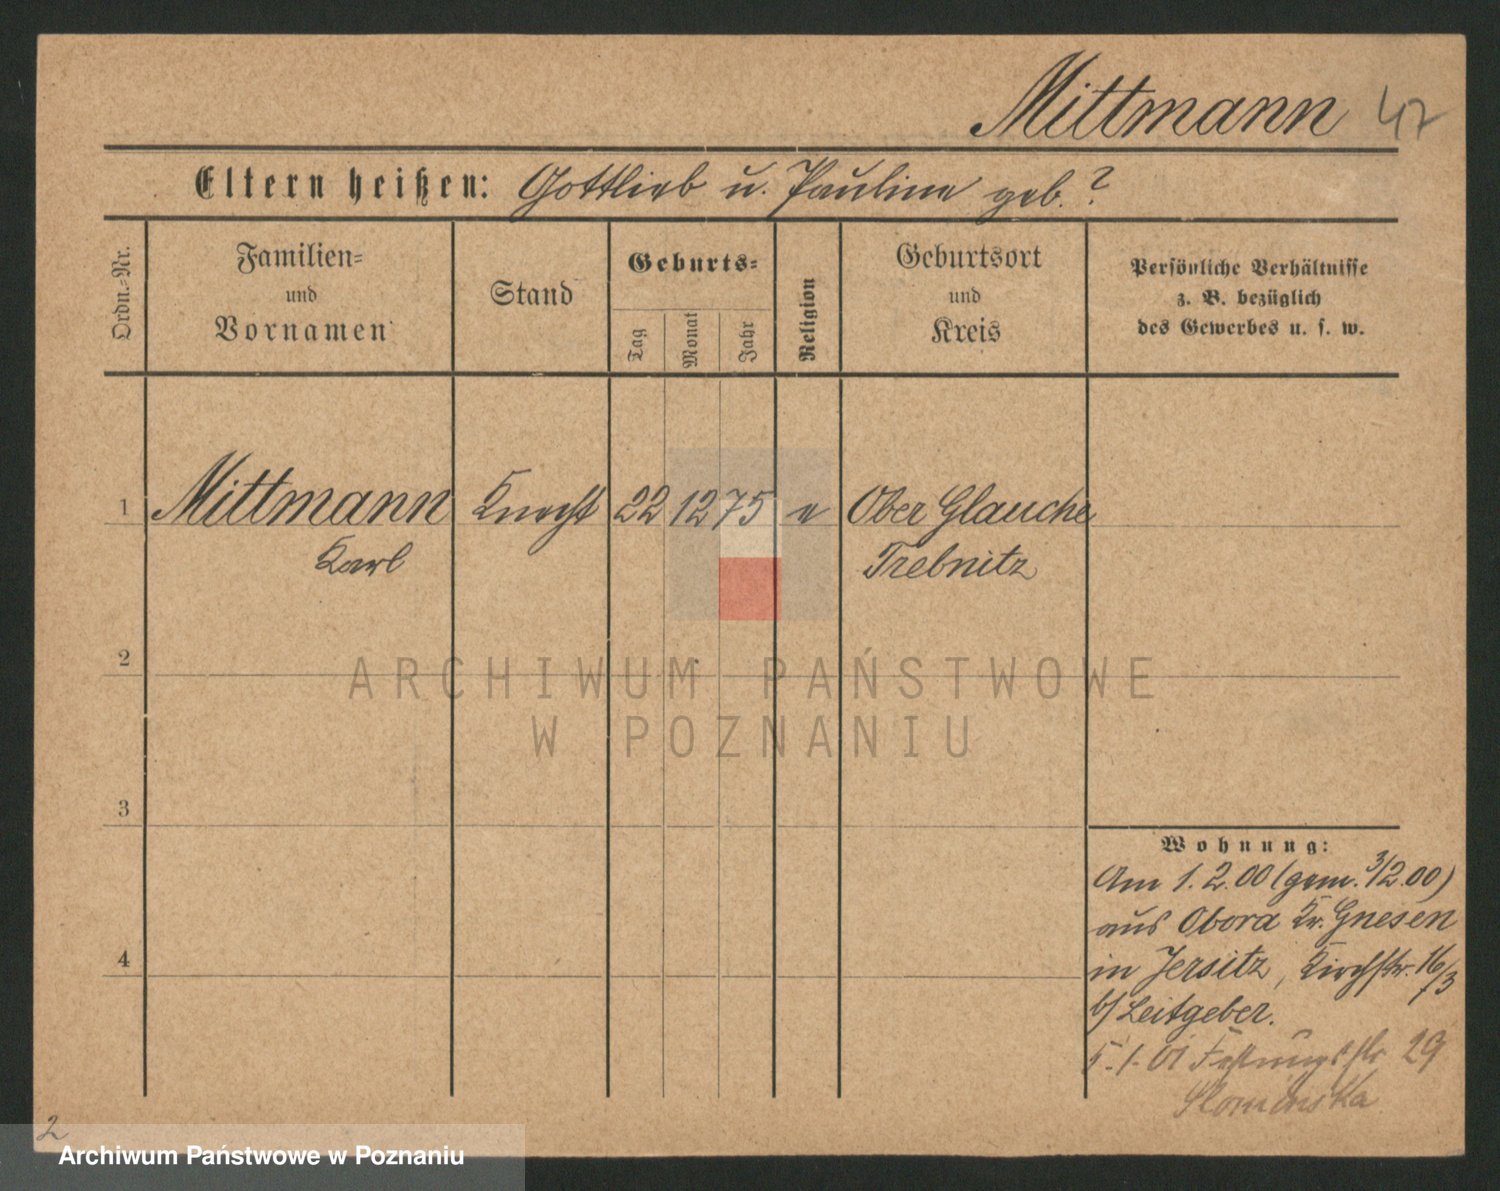 Mittmann 47
Eltern heißen: Gottlieb u. Pauline geb. ?
Ordn.-Nr.
Familien-
und
Vornamen
Stand
Geburts-
Tag
Monat
Jahr
Religion
Geburtsort
und
Kreis
Persönliche Verhältnisse
z. B. bezüglich
des Gewerbes u. s. w.
1 Mittmann Knecht 22 12 75 e Ober Glauche
Karl Trebnitz
2
3
4
ARCHIWUM PAŃSTWOWE
W POZNANIU
Wohnung:
Am 1. 2. 00 (gem. 3/2. 00)
aus Obora Kr. Gnesen
in Jersitz, Kirchstr. 16/3
b/ Leitgeber.
5. 1. 01 Festungsstr 29
Slominska
2
Archiwum Państwowe w Poznaniu